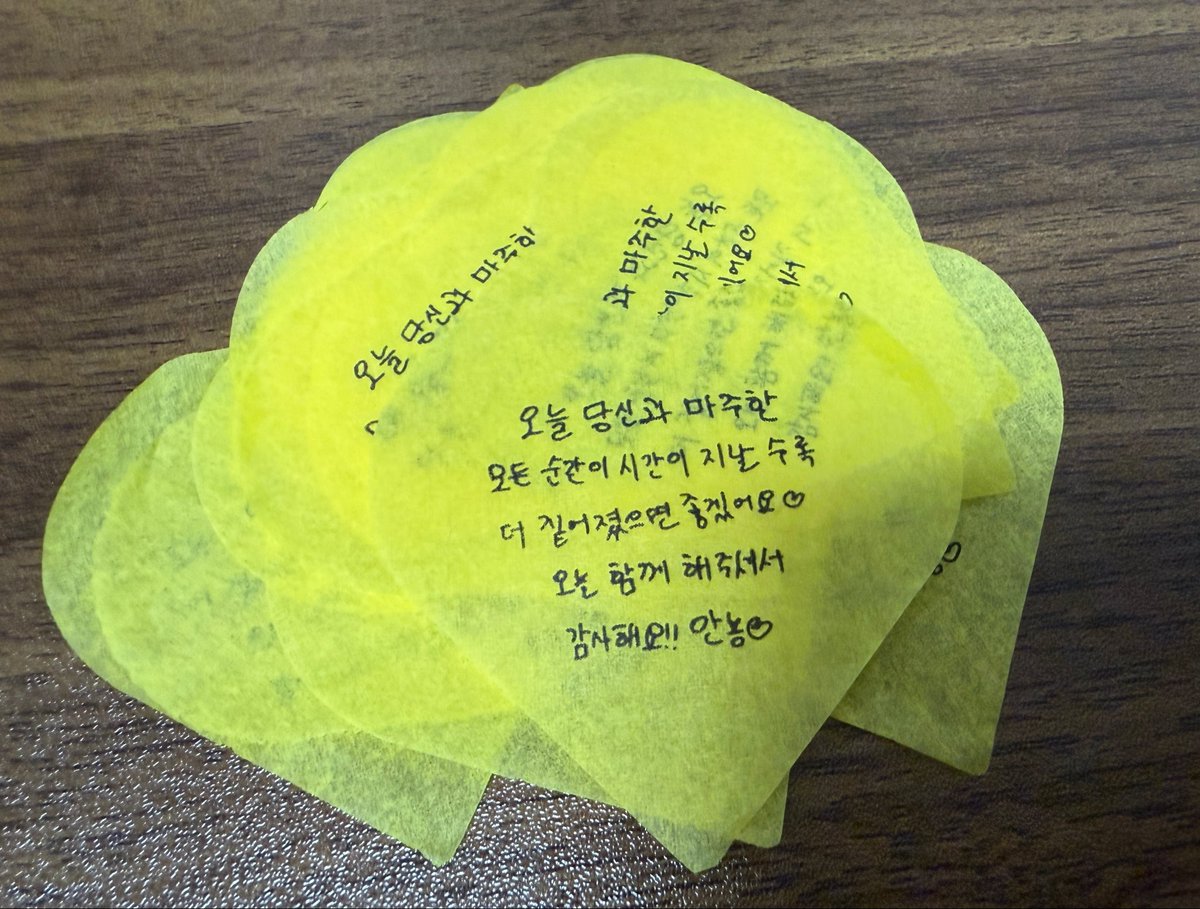 오늘 당신과 마주한
모든 순간이 시간이 지날 수록
더 짙어졌으면 좋겠어요♡
오늘 함께 해주셔서
감사해요!! 안뇽♡
오늘 당신과 마주하
과 마주한
이 지날 수록
어요♡
서